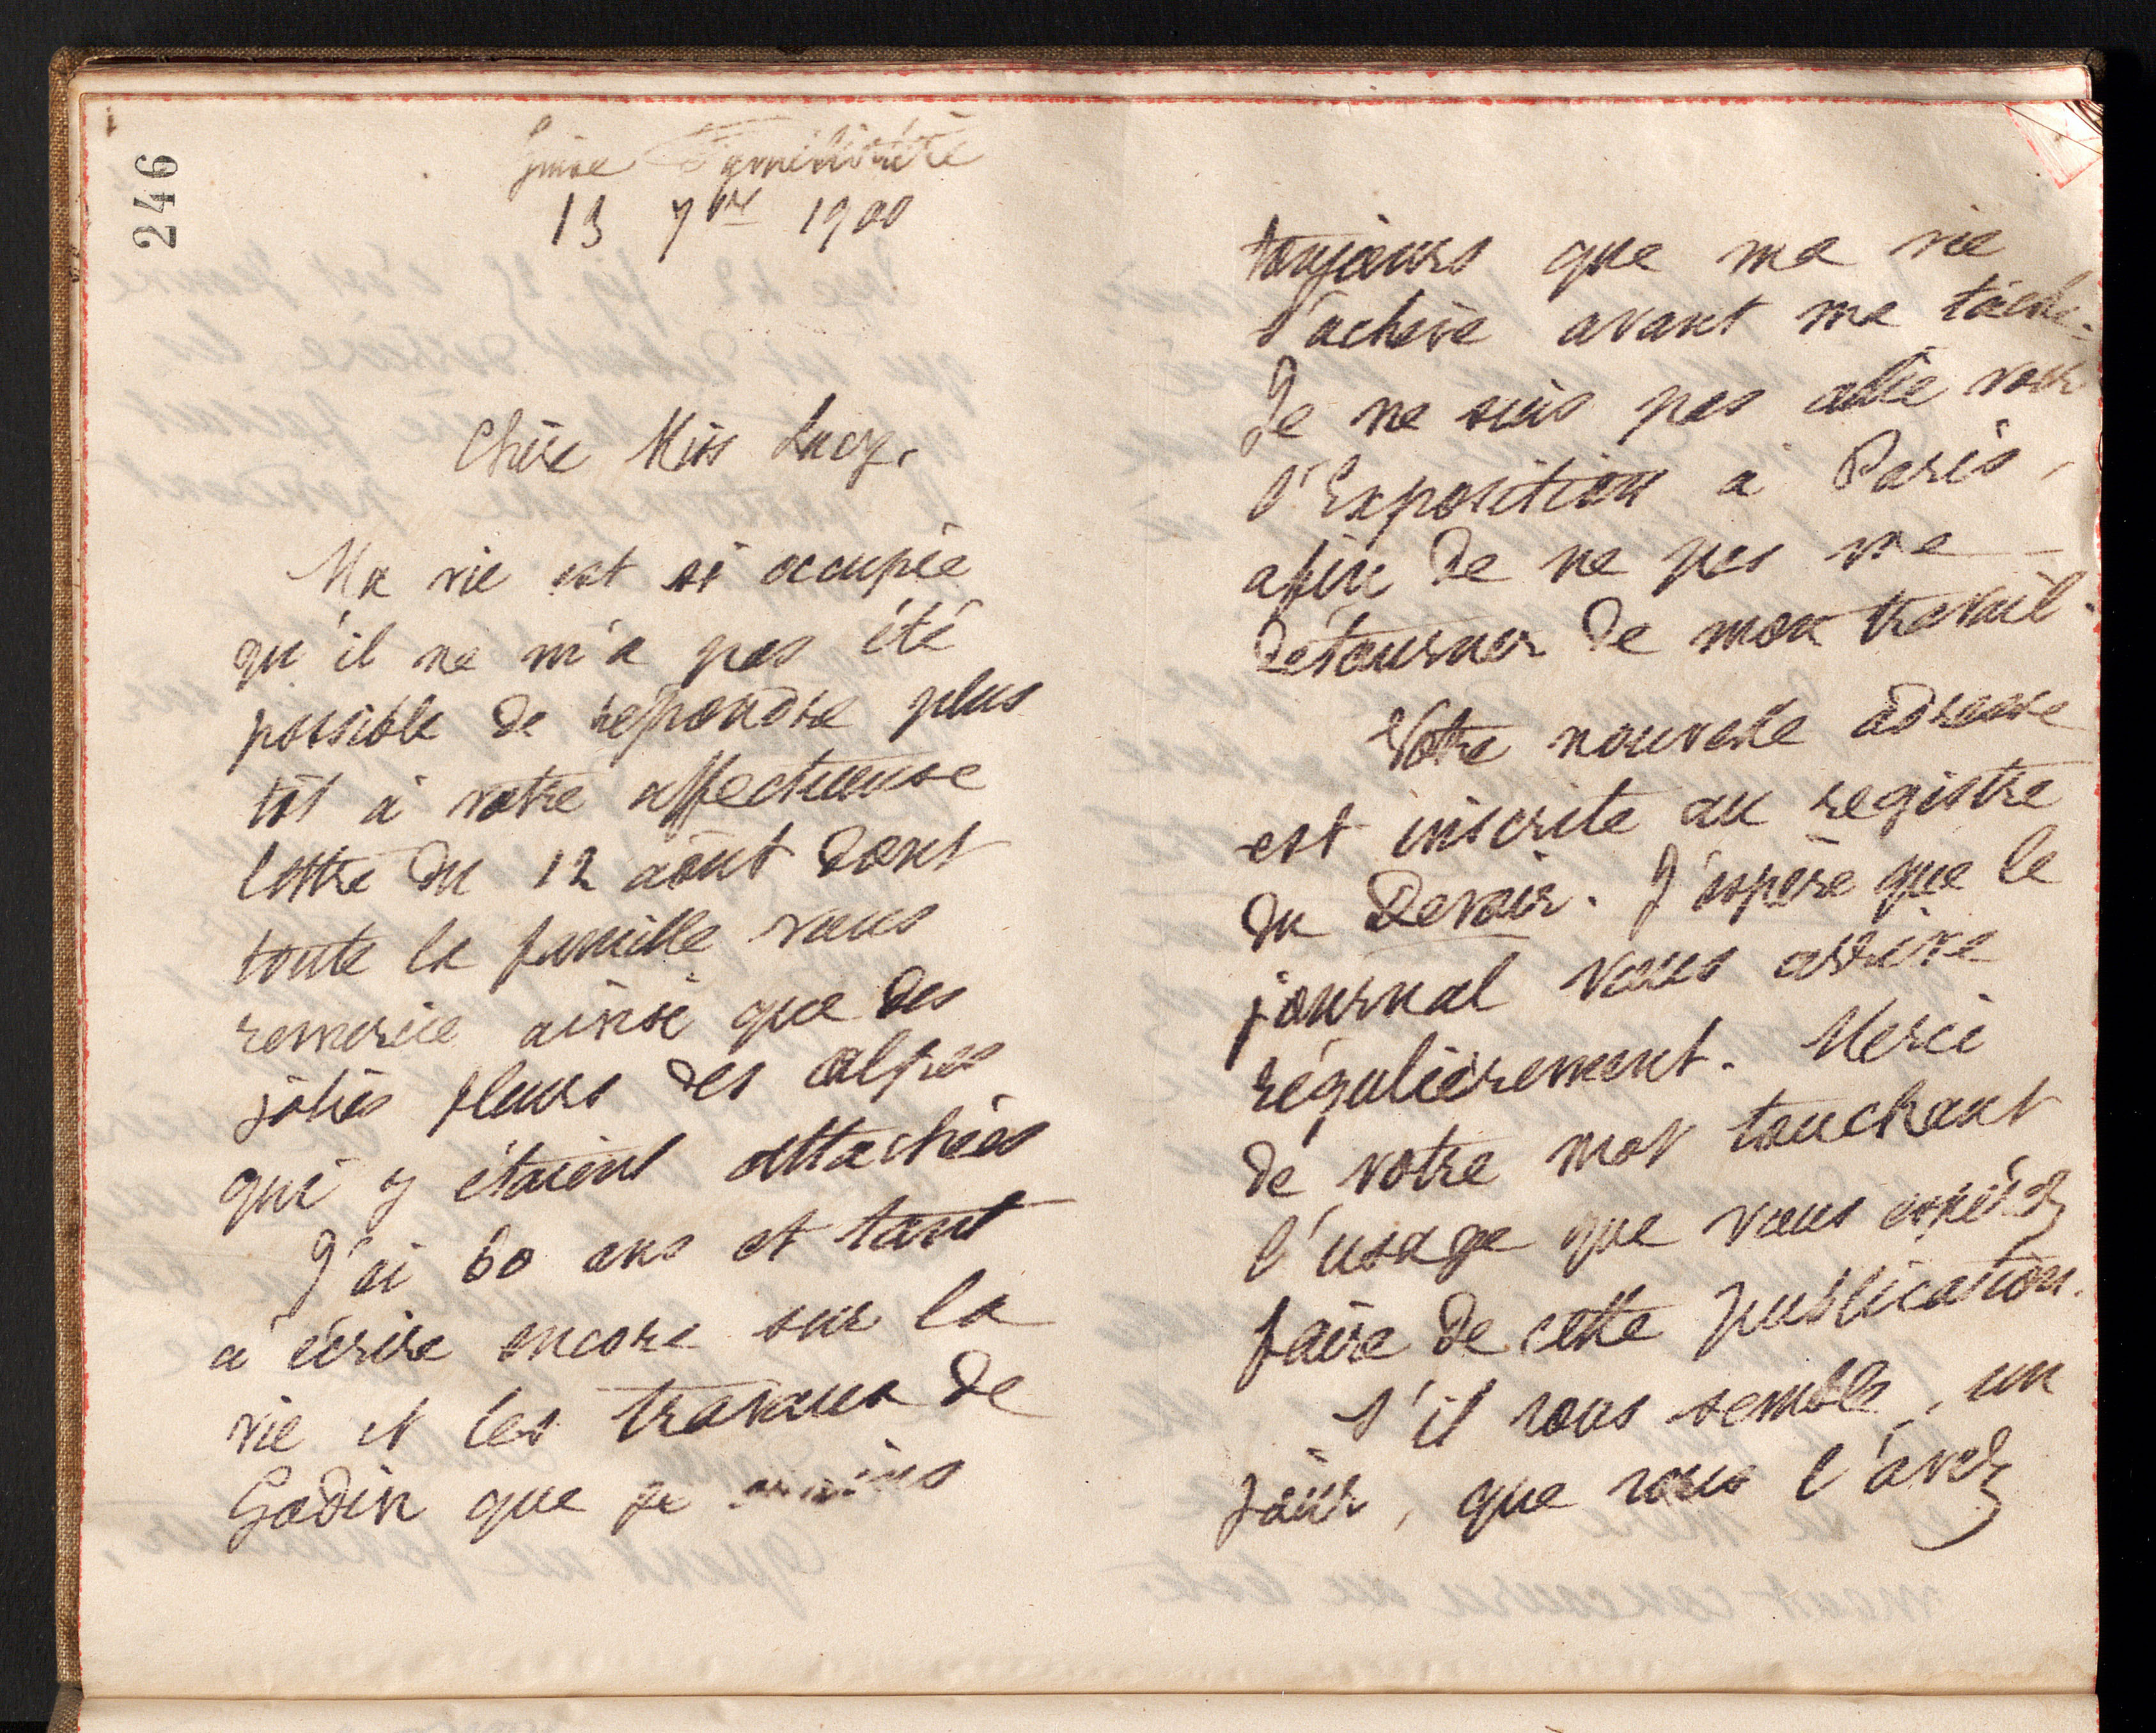 246
Guise Familistère
13 7bre 1900
Chère Miss Lucy,
Ma vie est si occupée
qu'il ne m'a pas été
possible de répondre plus
tôt à votre affectueuse
lettre du 12 août dont
toute la famille vous
remercie ainsi que des
jolies fleurs des alpes
qui y étaient attachées
J'ai 60 ans et tant
à écrire encore sur la
vie et les travaux de
Godin que je crains
toujours que ma vie
s'achève avant ma tâche.
Je ne suis pas allée voir
l'Exposition à Paris,
afin de ne pas me
détourner de mon travail.
Votre nouvelle adresse
est inscrite au registre
du Devoir. J'espère que le
journal vous arrive
régulièrement. Merci
de votre mot touchant
l'usage que vous espérez
faire de cette publication.
S'il vous semble, un
jour, que vous l'avez